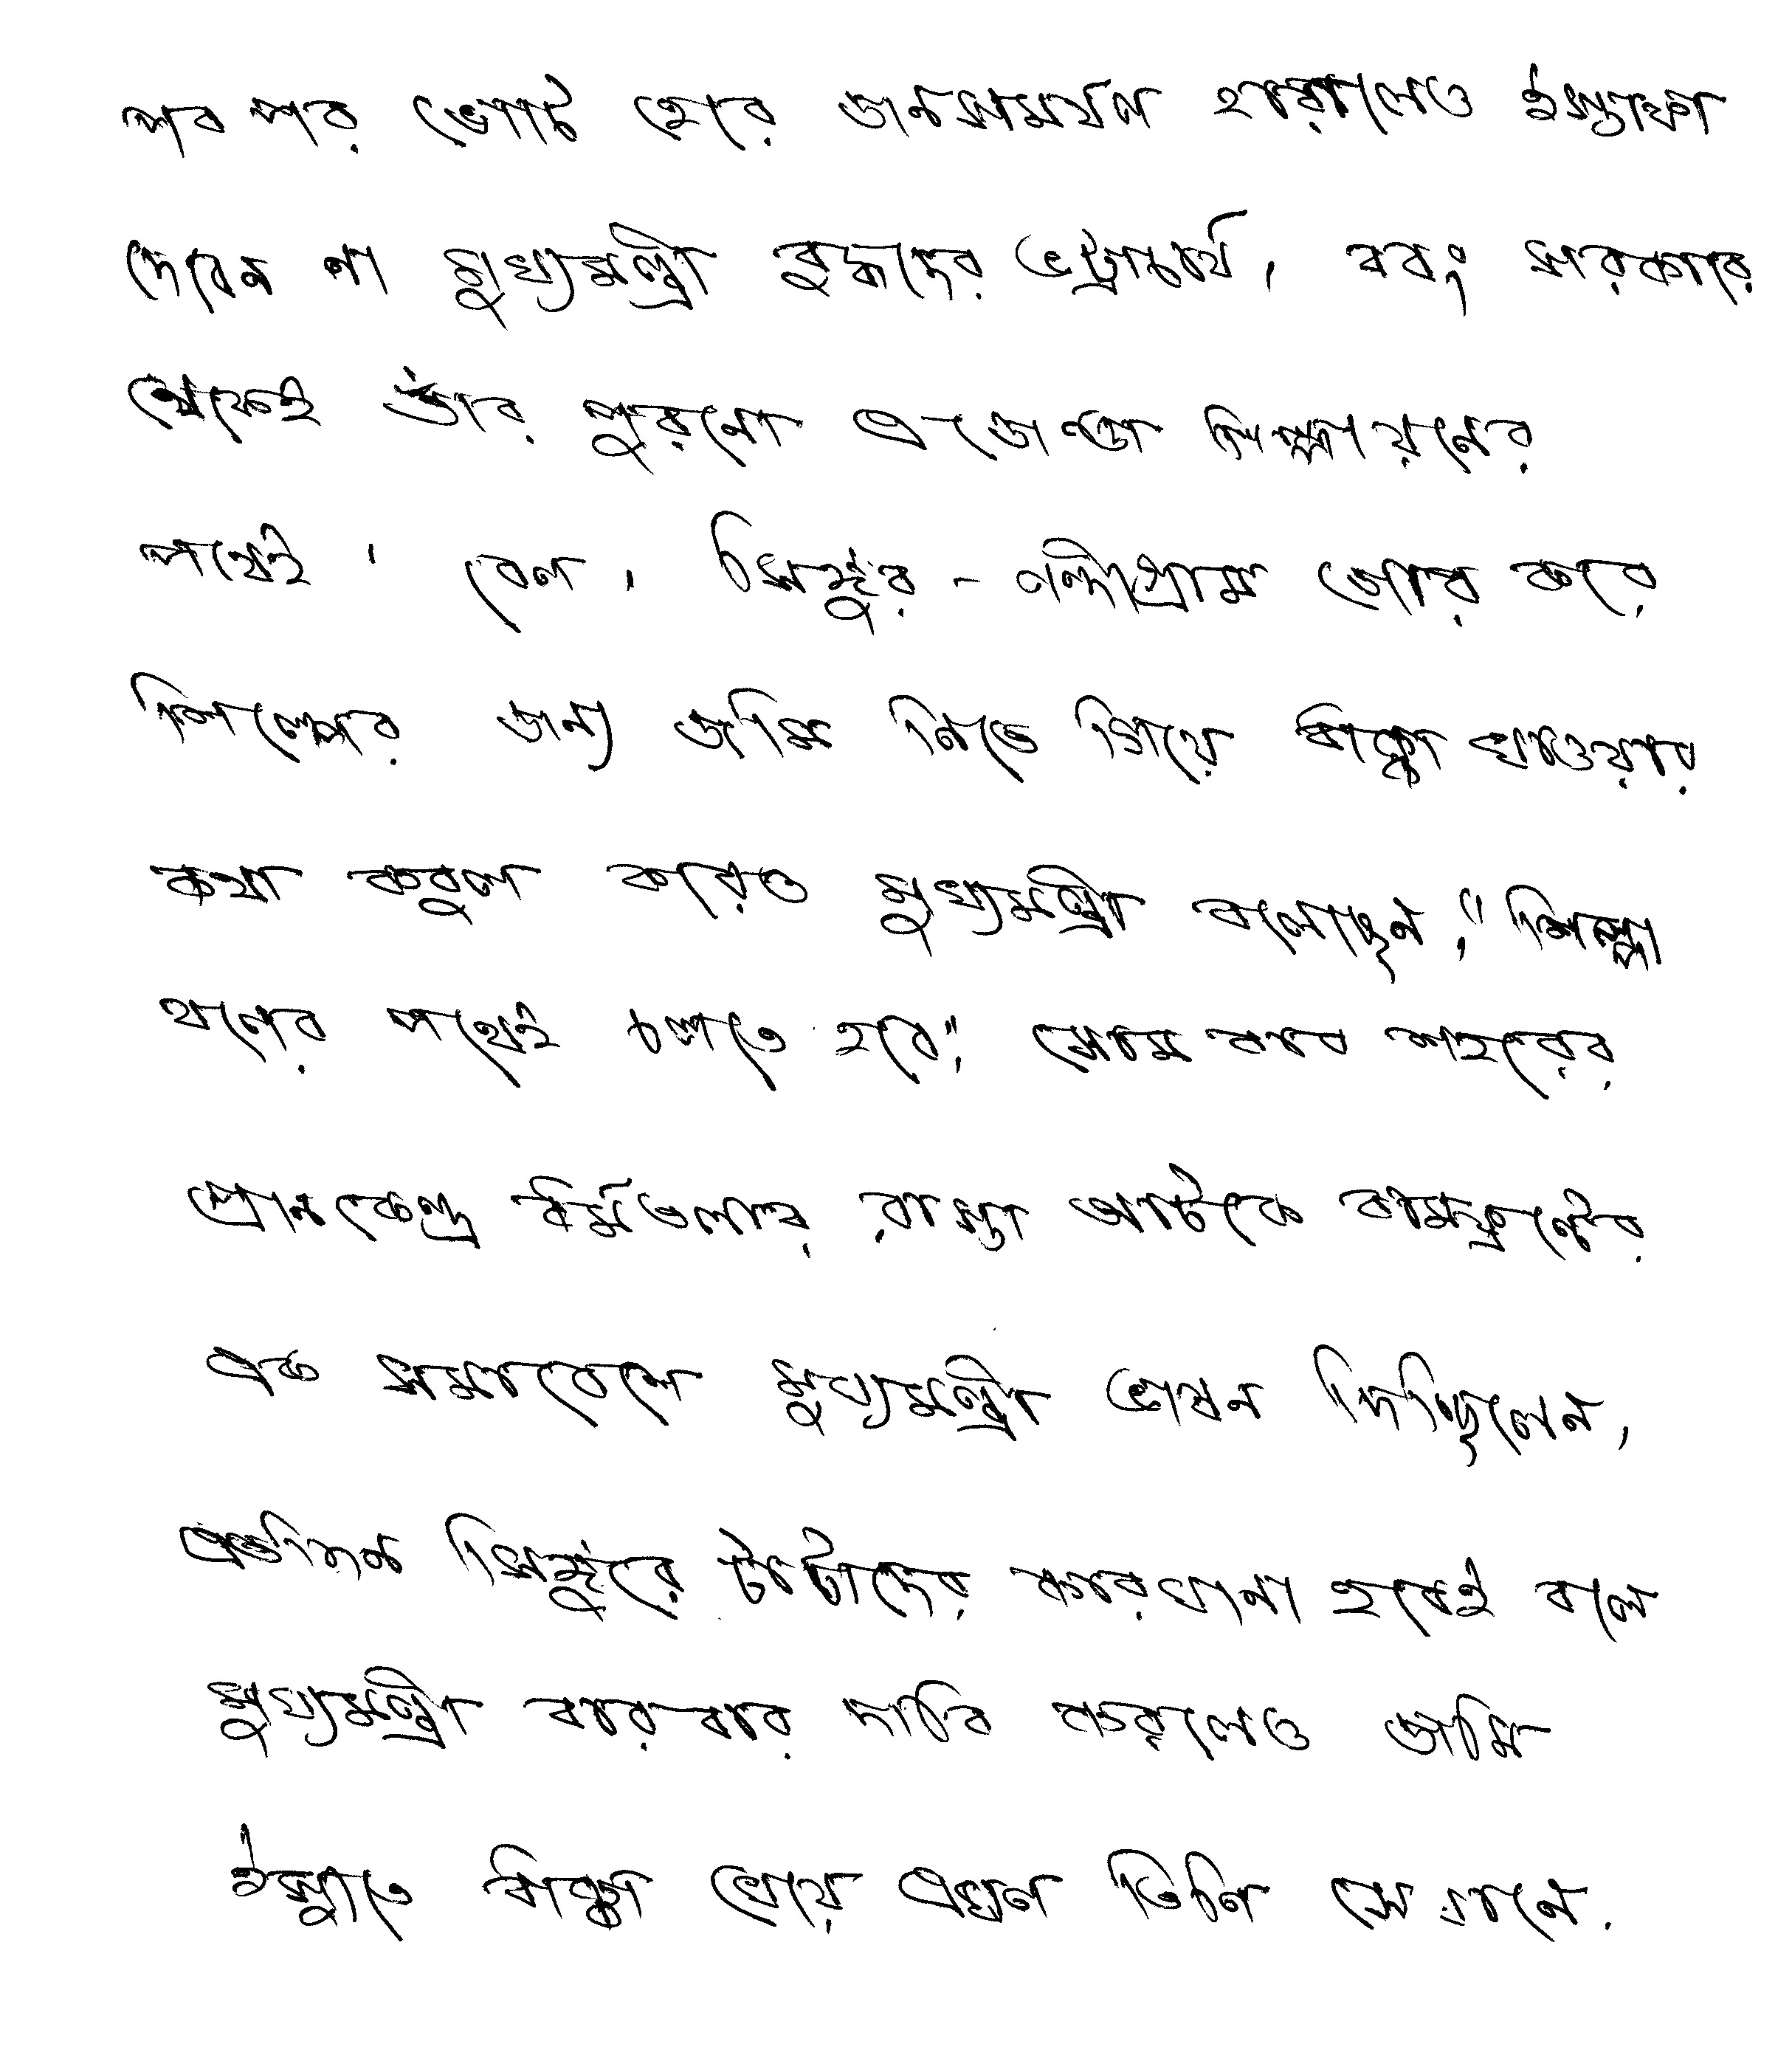 পর পর ভোটে হেরে জনসমর্থন হারালেও ইস্তাফা
দেবেন না মুখ্যমন্ত্রী বুদ্ধদেব ভট্টাচার্য, বরং সরকারে
থেকেই তাঁর পুরনো এজেন্ডা শিল্পায়নের
পথেই । বেন, সিঙ্গুর - নন্দীগ্রাম জোর করে
শিল্পের জন্য জমি নিতে গিয়ে ধাক্কা খাওয়ার
কথা কবুল করেও মুখ্যমন্ত্রী বলেছেন, "শিল্পা
য়নের পথেই চলতে হবে", সোমবার শহরের
প্রানকেন্দ্র ধর্মতলার রাস্তা আটকে বামফ্রন্টের
এক সমাবেশে মুখ্যমন্ত্রী ভাষন দিচ্ছিলেন,
এতদিন সিঙ্গুরে টাটাদের কারখানা হবেই বলে
মুখ্যমন্ত্রী বারবার দাবি করলেও জমি
ইস্যুতে ধাক্কা খেয়ে এখন তিনি সেখানে.